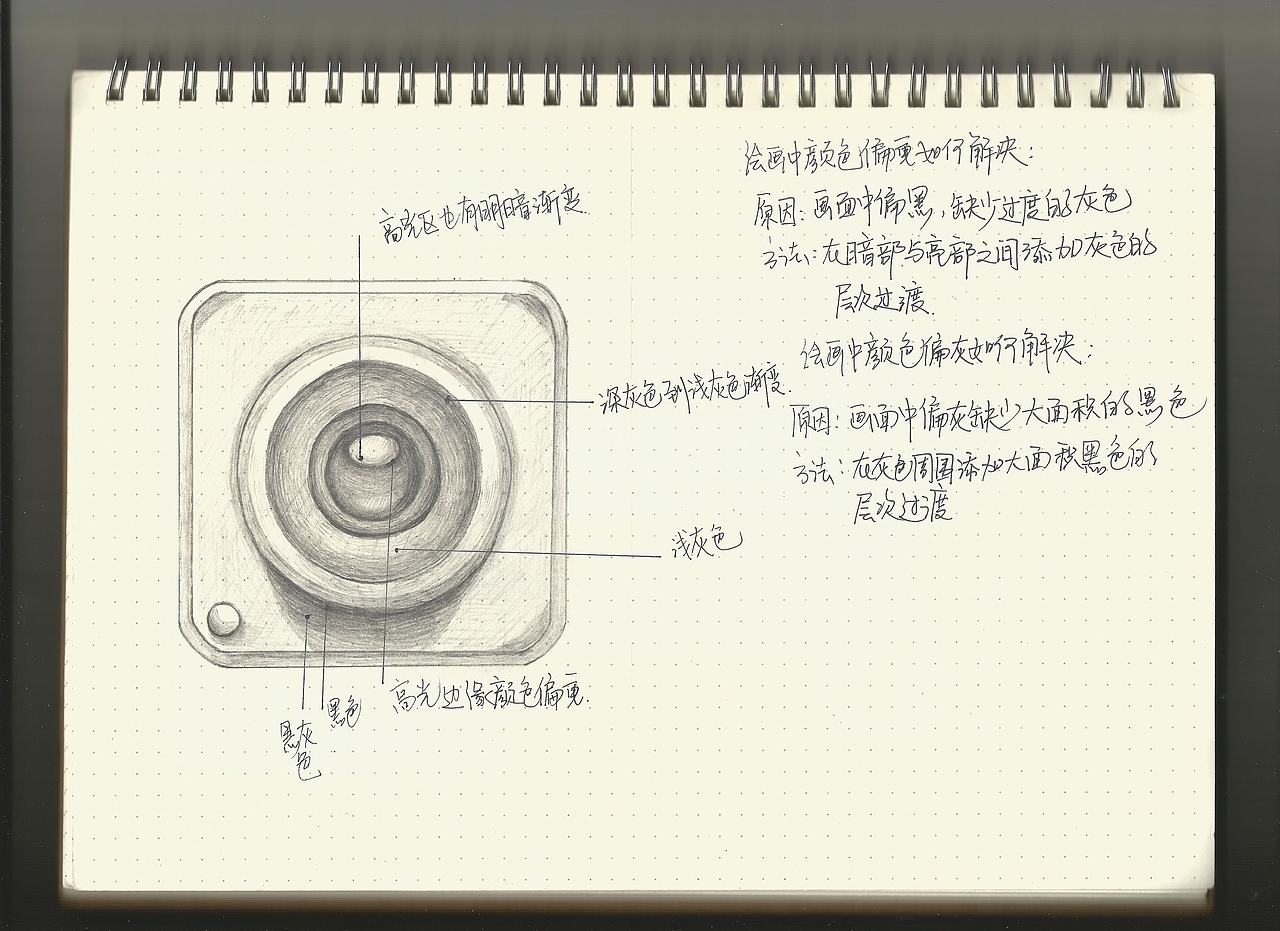 高光区也有明暗渐变.
深灰色到浅灰色渐变.
浅灰色
高光边缘颜色偏重.
黑色
黑灰
色
绘画中颜色偏重如何解决:
原因: 画面中偏黑,缺少过度的灰色
方法: 在暗部与亮部之间添加灰色的
层次过渡.
绘画中颜色偏灰如何解决:
原因: 画面中偏灰缺少大面积的黑色
方法: 在灰色周围添加大面积黑色的
层次过度